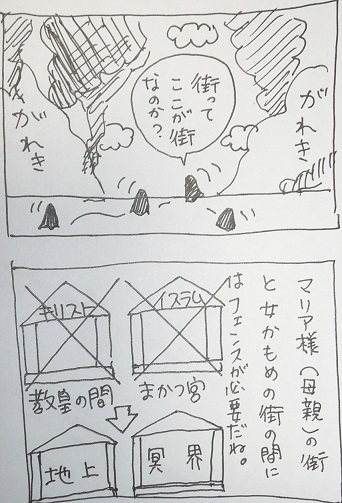 がれき
街って
ここが街
なのか?
がれき
マリア様(母親)の街
と女かもめの街の間に
はフェンスが必要だね。
イスラム
キリスト
まかつ宮
教皇の間
冥界
地上